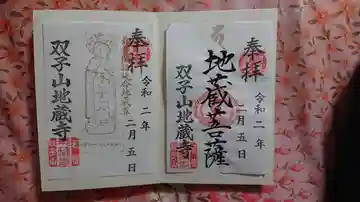 奉拝
令和二年
二月五日
地蔵菩薩
双子山地蔵寺
奉拝
令和二年
二月五日
双子山地蔵寺